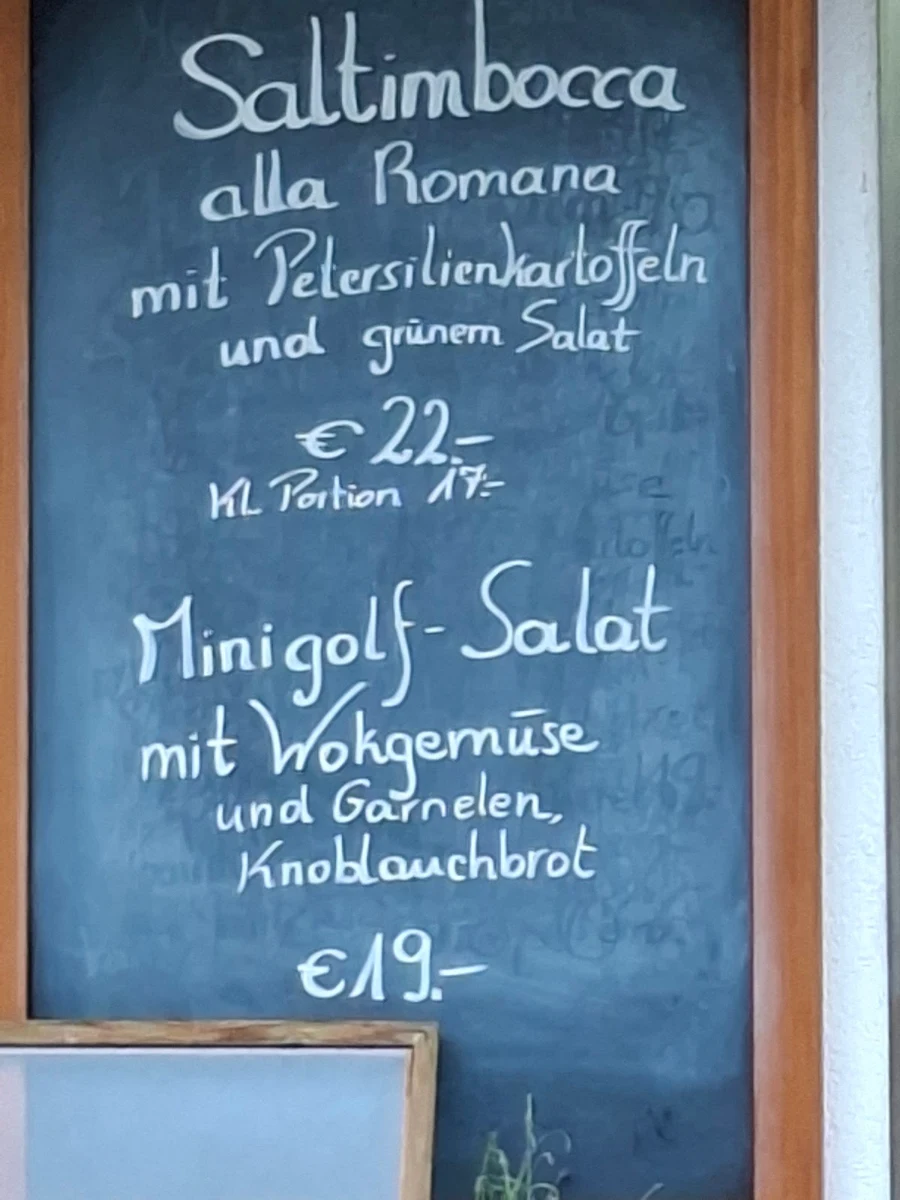 Saltimbocca
alla Romana
mit Petersilienkartoffeln
und grünem Salat
€ 22.-
KL Portion 17.-
Minigolf-Salat
mit Wokgemüse
und Garnelen,
Knoblauchbrot
€19.-